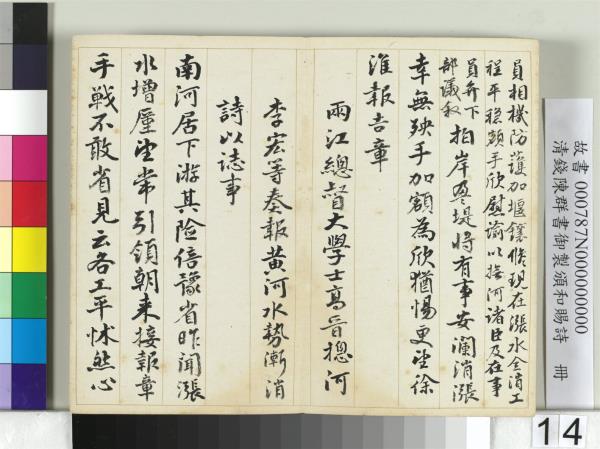 員相機防護加堰鑲修現在漲水全消工
程平穩額手欣慰諭以撫河諸臣及在事
員弁下
部議敘
拍岸盈堤將有事安瀾消漲
幸無殃手加額為欣猶惕更望徐
淮報吉章
兩江總督大學士高晉摠河
李宏等奏報黃河水勢漸消
詩以誌事
南河居下游其險倍豫省昨聞漲
水增廑望常引領朝來接報章
手戰不敢省見云各工平怵然心
故書 000787N000000000
清錢陳群書御製頒和賜詩 冊
14